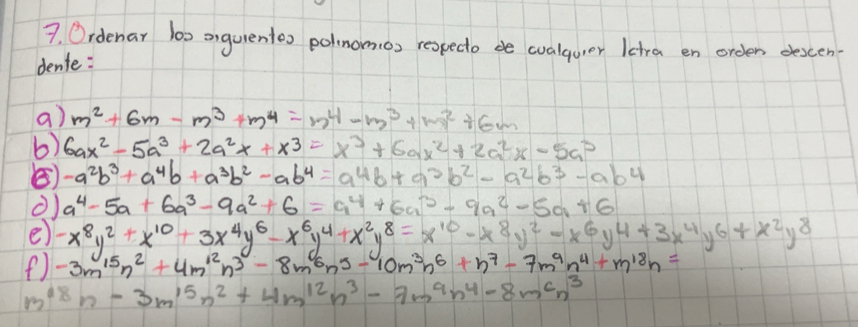 7. Ordenar los siguientes polinomios respecto de cualquier letra en orden descen-
dente:
a) m² + 6m - m³ + m⁴ = m⁴ - m³ + m² + 6m
b) 6ax² - 5a³ + 2a²x + x³ = x³ + 6ax² + 2a²x - 5a³
c) -a²b³ + a⁴b + a³b² - ab⁴ = a⁴b + a³b² - a²b³ - ab⁴
d) a⁴ - 5a + 6a³ - 9a² + 6 = a⁴ + 6a³ - 9a² - 5a + 6
e) -x⁸y² + x¹⁰ + 3x⁴y⁶ - x⁶y⁴ + x²y⁸ = x¹⁰ - x⁸y² - x⁶y⁴ + 3x⁴y⁶ + x²y⁸
f) -3m¹⁵n² + 4m¹²n³ - 8m⁶n⁵ - 10m³n⁶ + n⁷ - 7m⁹n⁴ + m¹⁸n =
m¹⁸n - 3m¹⁵n² + 4m¹²n³ - 7m⁹n⁴ - 8m⁶n³